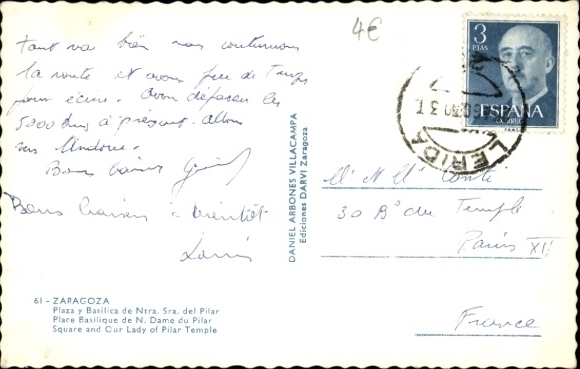 tout va bien nous continuons
la route et avons peu de temps
pour écrire. Avons dépassé les
5000 kms à présent. Allons
vers Andorre.
Bons baisers
Bons baisers à bientôt
4€
3
PTAS
ESPAÑA
CORREO
LERIDA
DANIEL ARBONES VILLACAMPA
Ediciones DARVI Zaragoza
Mr Mme Conté
30 Bd du Temple
Paris XI
France
61 - ZARAGOZA
Plaza y Basílica de Ntra. Sra. del Pilar
Place Basilique de N. Dame du Pilar
Square and Our Lady of Pilar Temple